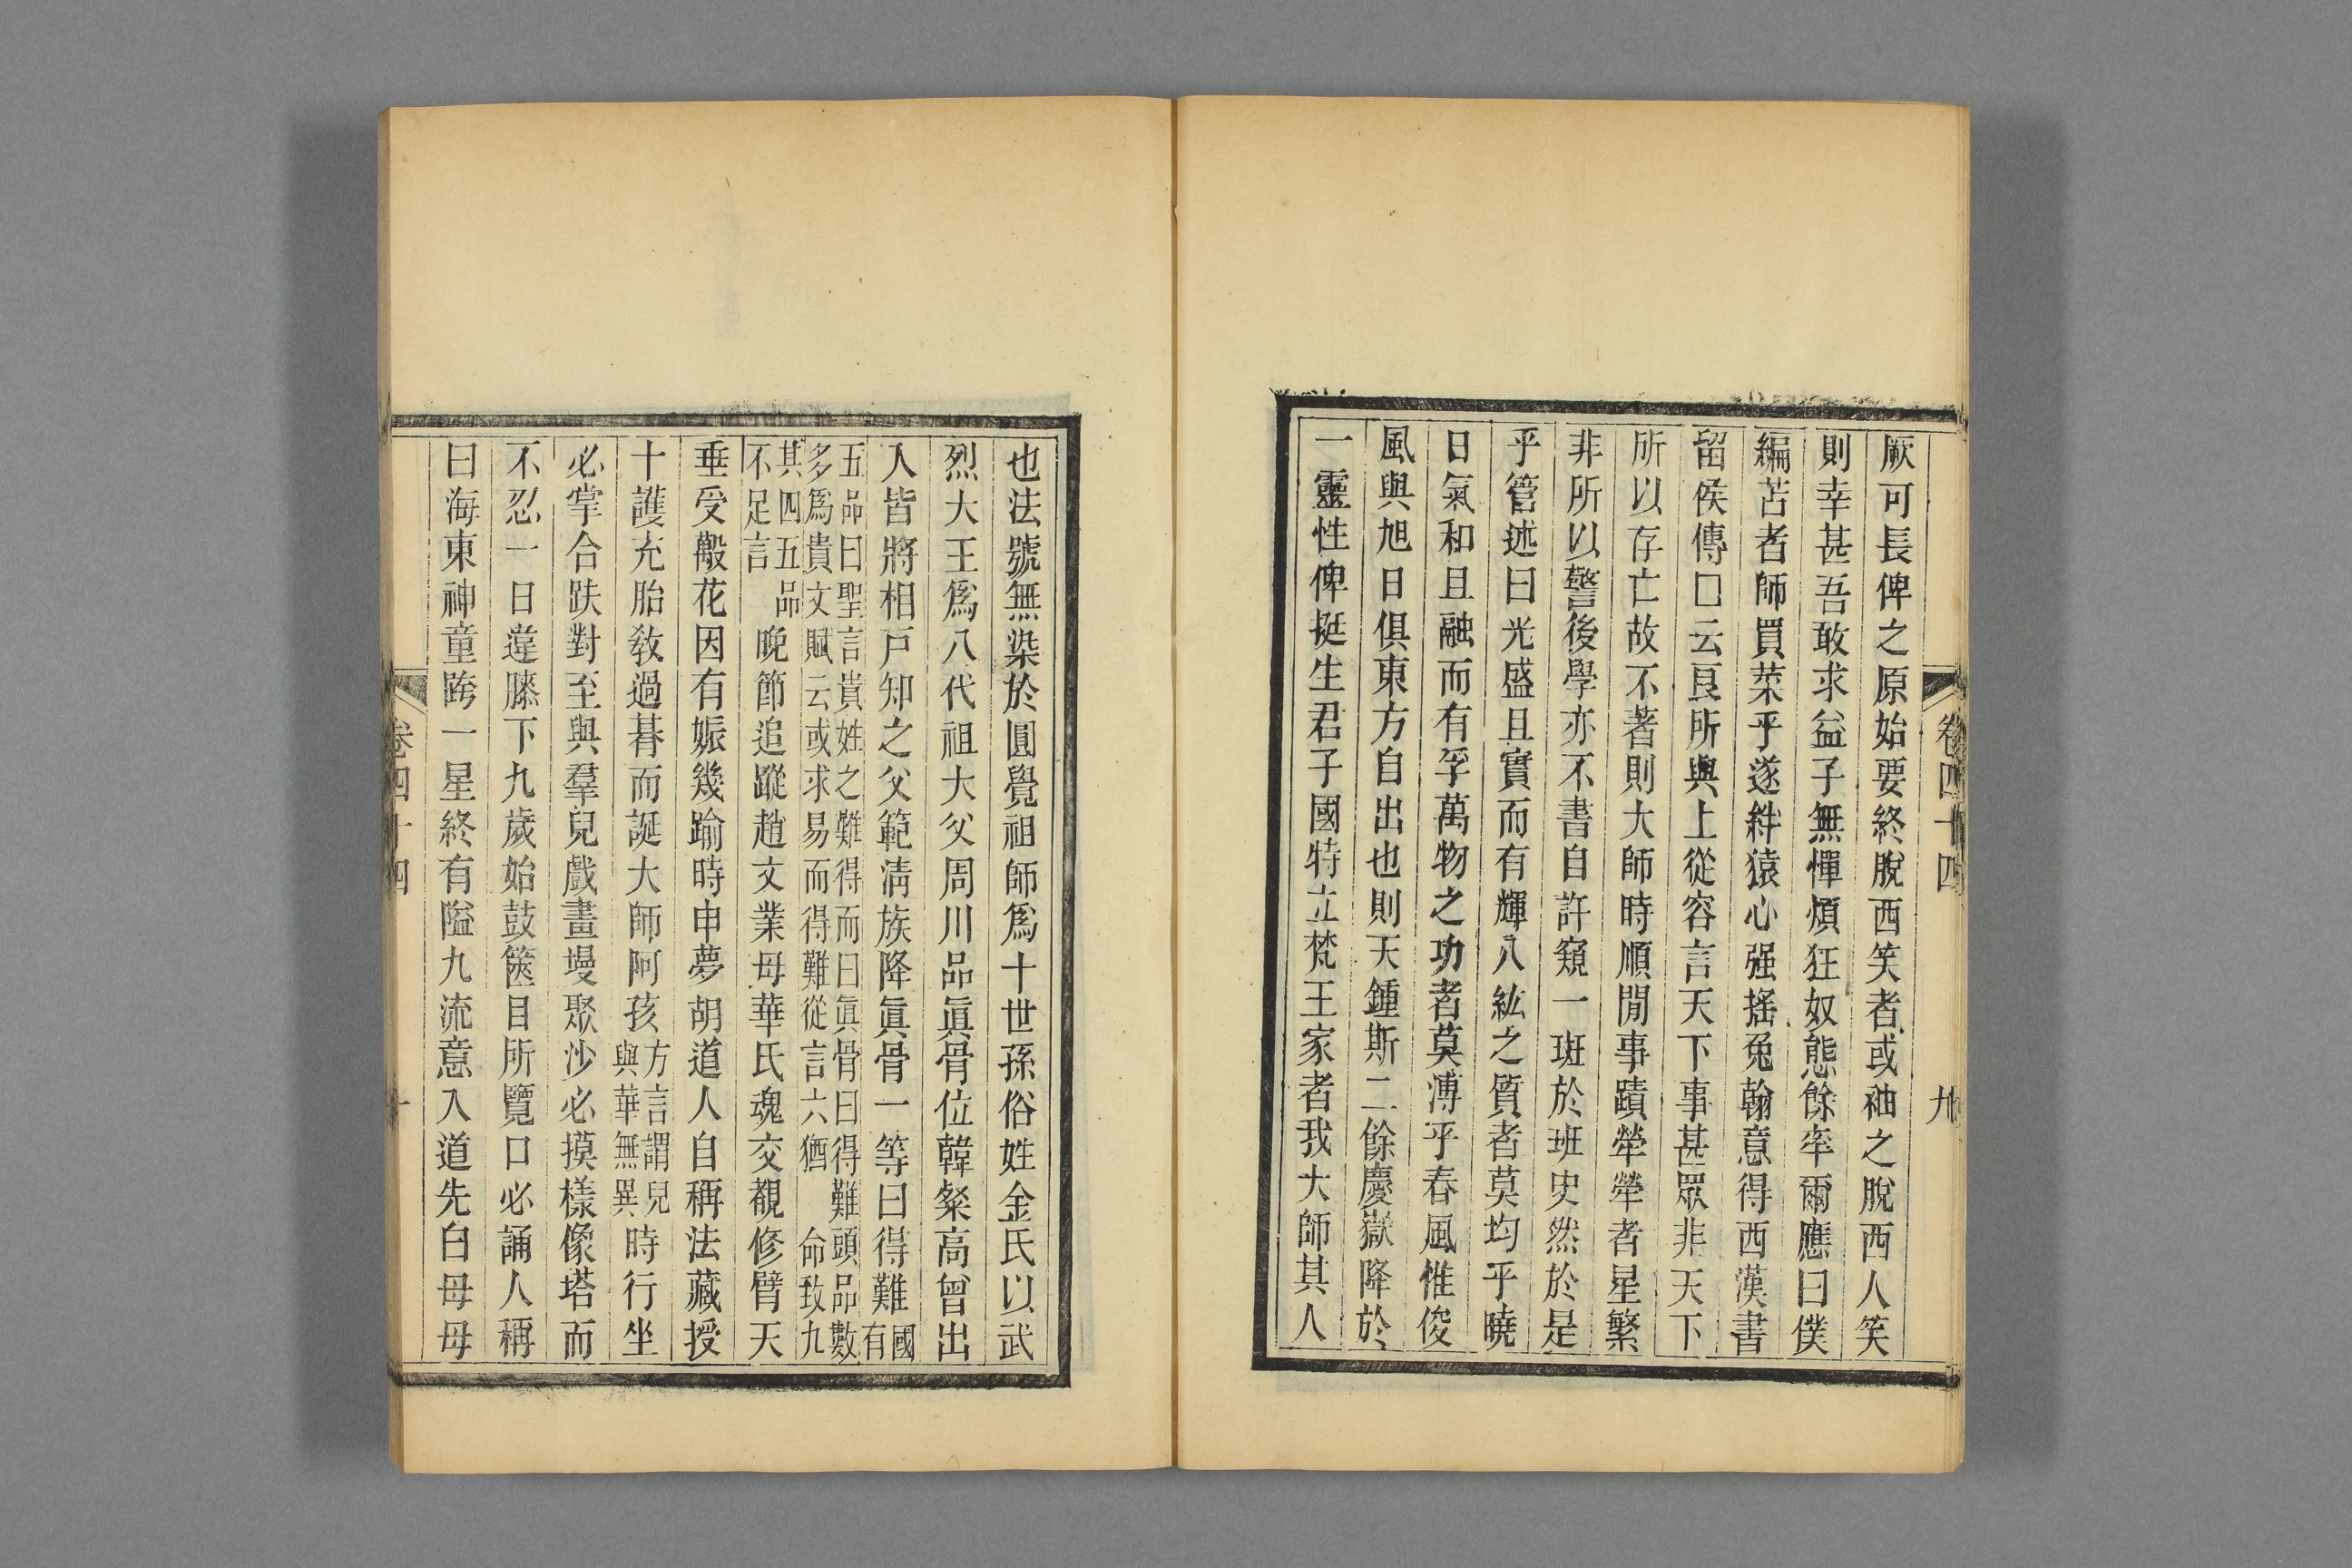 厥可長俾之原始要終脫西笑者或袖之脫西人笑
則幸甚吾敢求益子無憚煩狂奴態餘率爾應曰僕
編苫者師買菜乎遂絆猿心强搖兔翰意得西漢書
留侯傳□云良所與上從容言天下事甚眾非天下
所以存亡故不著則大師時順閒事蹟犖犖者星繁
非所以警後學亦不書自許窺一班於班史然於是
乎管述曰光盛且實而有輝八紘之質者莫均乎曉
日氣和且融而有孚萬物之功者莫溥乎春風惟俊
風與旭日俱東方自出也則天鍾斯二餘慶嶽降於
一靈性俾挺生君子國特立梵王家者我大師其人
卷四十四
九
也法號無染於圓覺祖師爲十世孫俗姓金氏以武
烈大王爲八代祖大父周川品眞骨位韓粲高曾出
入皆將相戸知之父範淸族降眞骨一等曰得難國有
五品曰聖言貴姓之難得而曰眞骨曰得難頭品數
多爲貴文賦云或求易而得難從言六猶 命致九
其四五品
不足言
晚節追蹤趙文業母華氏魂交覩修臂天
垂受㲉花因有娠幾踰時申夢胡道人自稱法藏授
十護充胎敎過朞而誕大師阿孩方言謂兒與華無異時行坐
必掌合趺對至與羣兒戲畫墁聚沙必摸樣像塔而
不忍一日違膝下九歲始鼓篋目所覽口必誦人稱
曰海東神童跨一星終有隘九流意入道先白母母
卷四十四
十